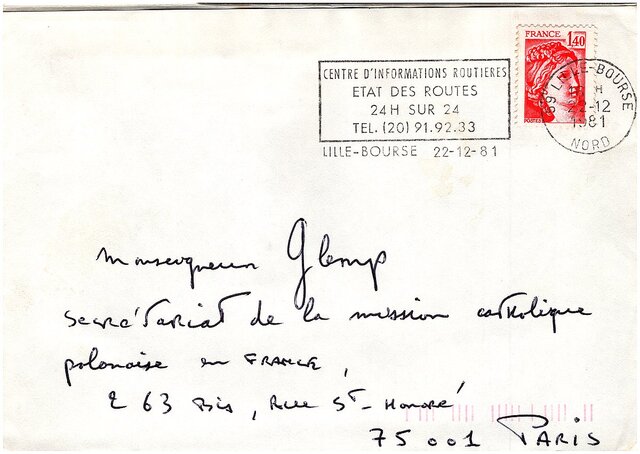 FRANCE 1,40
POSTES
CENTRE D'INFORMATIONS ROUTIERES
ETAT DES ROUTES
24H SUR 24
TEL. (20) 91.92.33
LILLE-BOURSE 22-12-81
59 LILLE-BOURSE
H
22-12
1981
NORD
Monseigneur Glemp
Secrétariat de la mission catholique
polonaise en FRANCE,
263 Bis, Rue St-Honoré
75001 PARIS